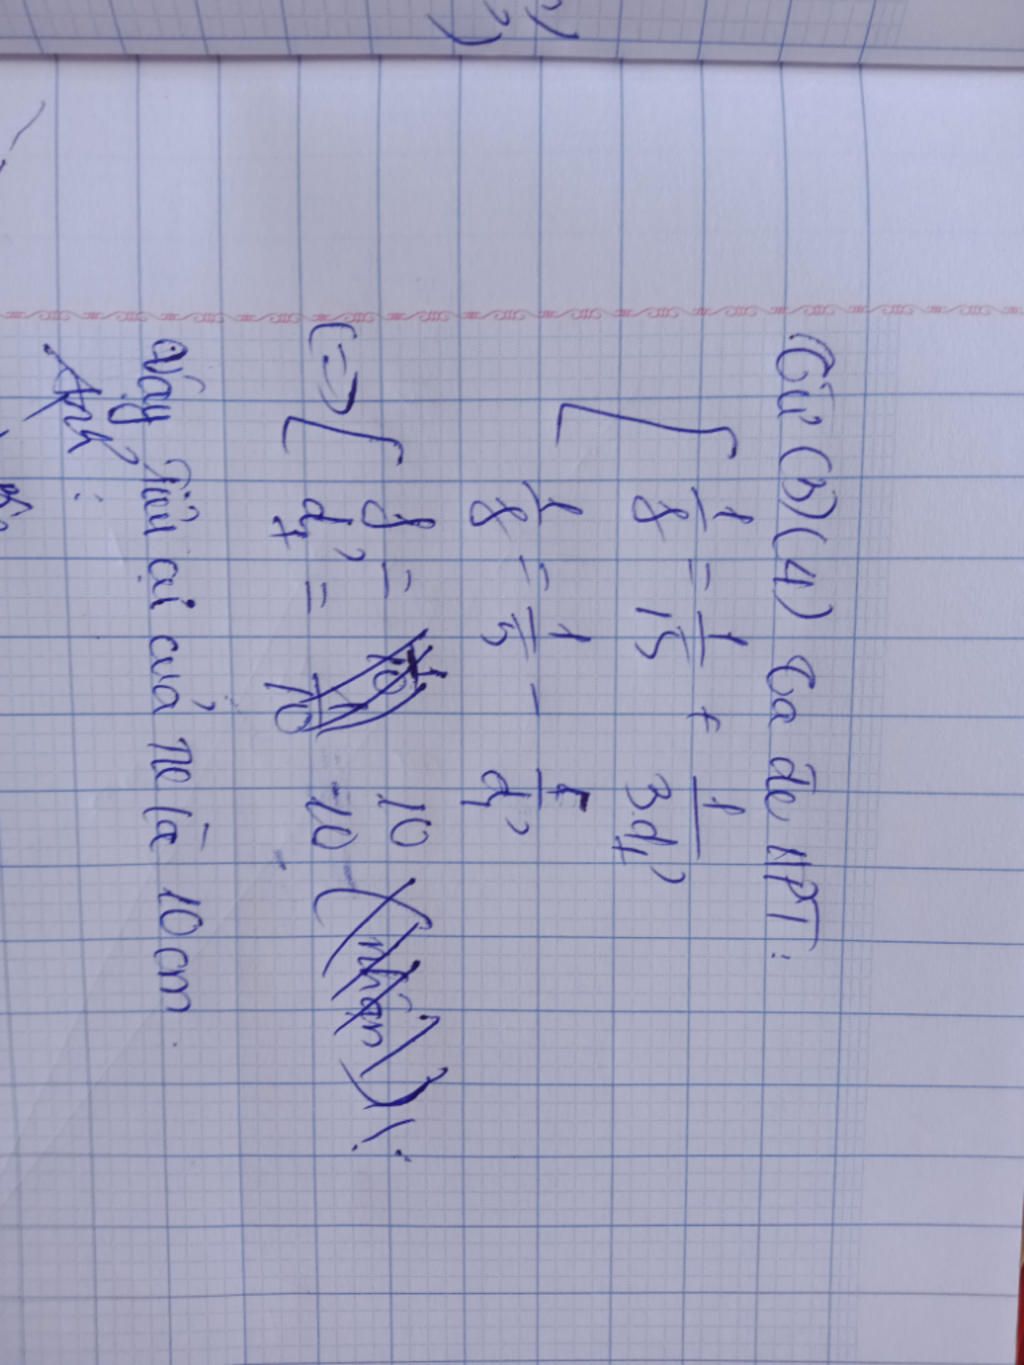 Từ (3)(4) ta đc HPT:
1/f = 1/15 + 1/3d₁'
1/f = 1/5 - 1/d₁'
(=) f = 10
d₁' = 10
(nhận)
Vậy tiêu cự của TK là 10cm.
Ảnh: